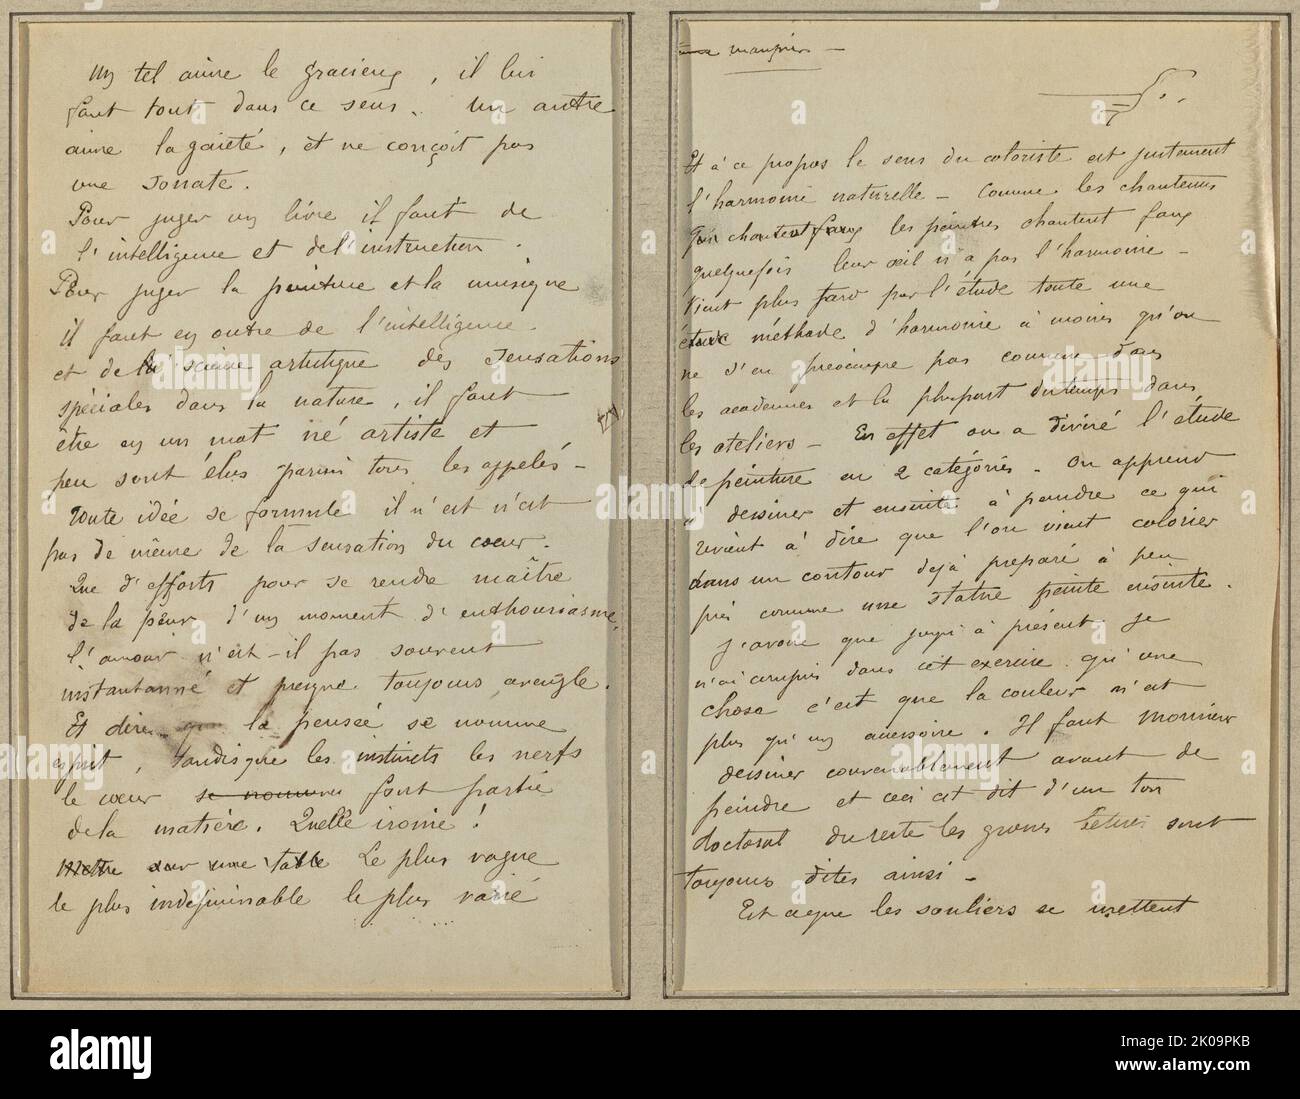 Un tel aime le gracieux, il lui
faut tout dans ce sens. Un autre
aime la gaieté, et ne conçoit pas
une Sonate.
Pour juger un livre il faut de
l'intelligence et de l'instruction.
Pour juger la peinture et la musique
il faut en outre de l'intelligence
et de la science artistique des sensations
spéciales dans la nature, il faut
être en un mot né artiste et
peu sont élus parmi tous les appelés -
Toute idée se formule il n'est n'est
pas de même de la sensation du cœur.
Que d'efforts pour se rendre maître
de la peur d'un moment d'enthousiasme.
l'amour n'est-il pas souvent
instantanné et presque toujours aveugle.
Et dire que la penseé se nomme
esprit, tandisque les instincts les nerfs
le cœur se nomme font partie
dela matière. Quelle ironie !
Mettre sur une table Le plus vague
le plus indéfinissable le plus varié
-
Et à ce propos le sens du coloriste est justement
l'harmonie naturelle - Comme les chanteurs
qui chantent faux les peintres chantent faux
quelquefois leur œil n'a pas l'harmonie -
Vient plus tard par l'étude toute une
étude méthode d'harmonie à moins qu'on
ne s'en préoccupe pas comme dans
les academies et la plupart du temps dans
les ateliers - En effet on a divisé l'étude
de peinture en 2 catégories - On apprend
à dessiner et ensuite à peindre ce qui
revient à dire que l'on vient colorier
dans un contour déjà préparé à peu
près comme une statue peinte ensuite.
J'avoue que jusqu'à présent je
n'ai compris dans cet exercise qu'une
chose c'est que la couleur n'est
plus qu'un accessoire. Il faut Monsieur
dessiner convenablement avant de
peindre et ceci est dit d'un ton
doctoral du reste les grosses bétises sont
toujours dites ainsi -
Est ce que les souliers se mettent
alamy
Image ID: 2K09PKB
www.alamy.com